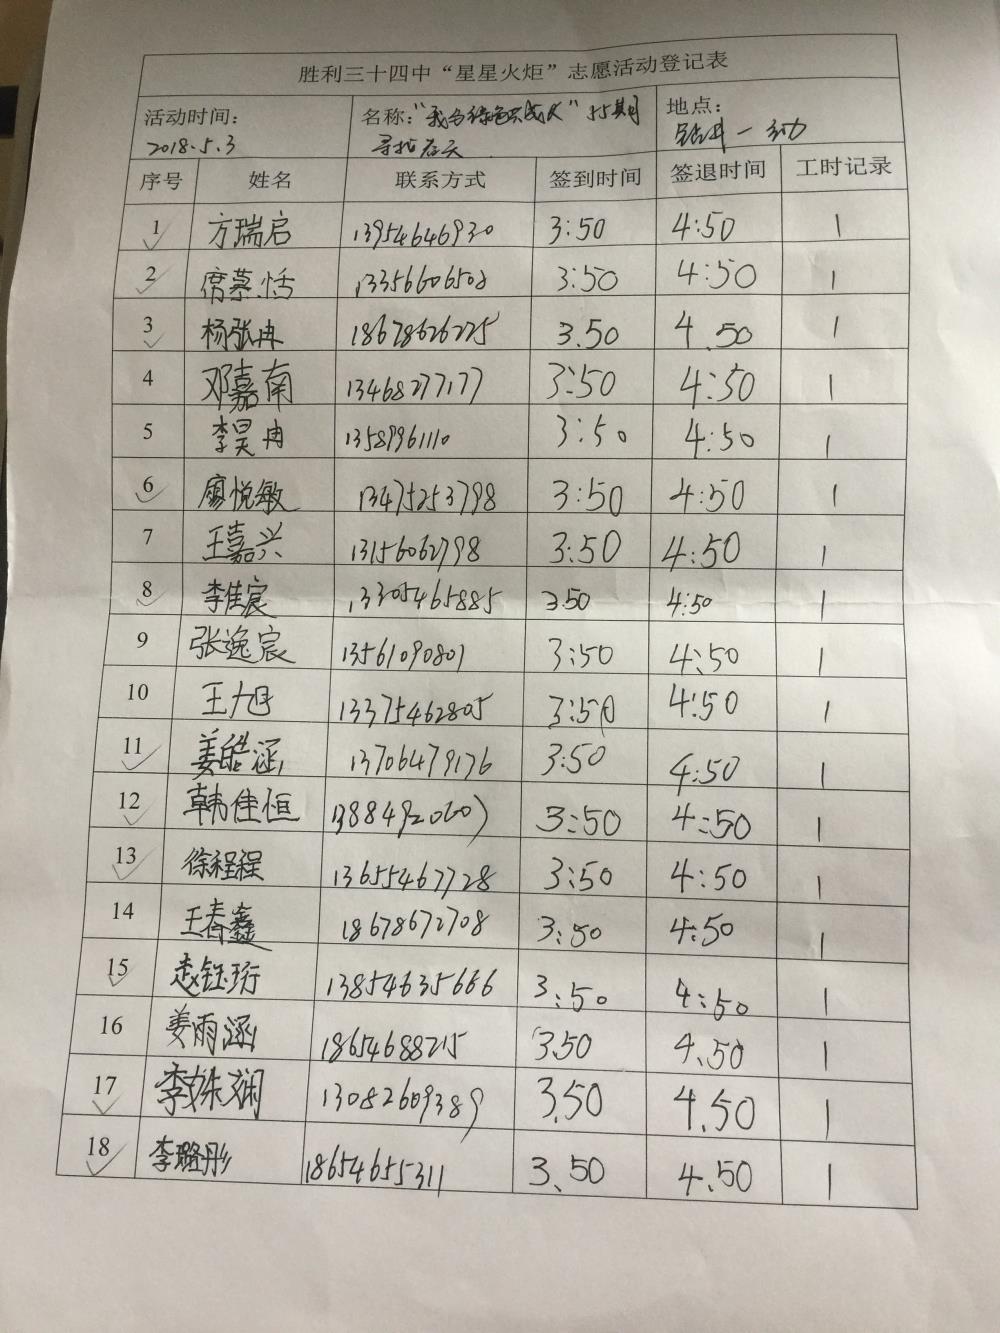 胜利三十四中“星星火炬”志愿活动登记表
活动时间： 名称：“我为绿色 ”55期 地点：
2018.5.3 寻找春天 钻井一
序号 姓名 联系方式 签到时间 签退时间 工时记录
1 方瑞启 13954646930 3:50 4:50 1
2 席慕恬 13356606508 3:50 4:50 1
3 杨张冉 18678626225 3.50 4.50 1
4 邓嘉南 13468277177 3:50 4:50 1
5 李昊冉 13589961110 3:50 4:50 1
6 廖悦敏 13475253798 3:50 4:50 1
7 王嘉兴 13156062798 3:50 4:50 1
8 李佳宸 13305465885 3.50 4:50 1
9 张逸宸 13561090801 3:50 4:50 1
10 王旭 13375462805 3:50 4:50 1
11 姜皓涵 13706479176 3:50 4:50 1
12 韩佳恒 13884920607 3:50 4:50 1
13 徐程程 13655467728 3:50 4:50 1
14 王春鑫 18678672708 3:50 4:50 1
15 赵钰珩 13854635666 3:50 4:50 1
16 姜雨涵 18654688215 3.50 4.50 1
17 李姝娴 13082609389 3.50 4.50 1
18 李璐彤 18654655311 3.50 4.50 1